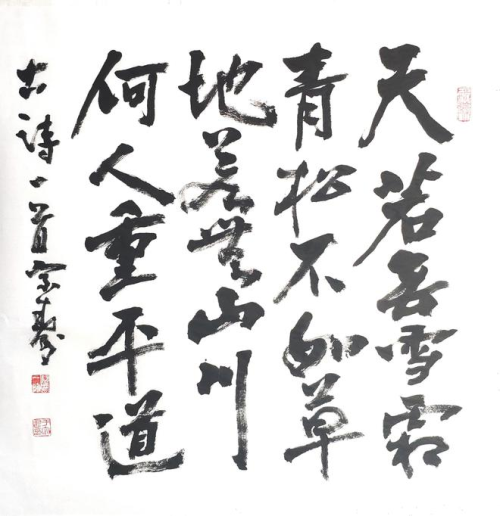 天若無雪霜
青松不如草
地若無山川
何人重平道
古诗一首